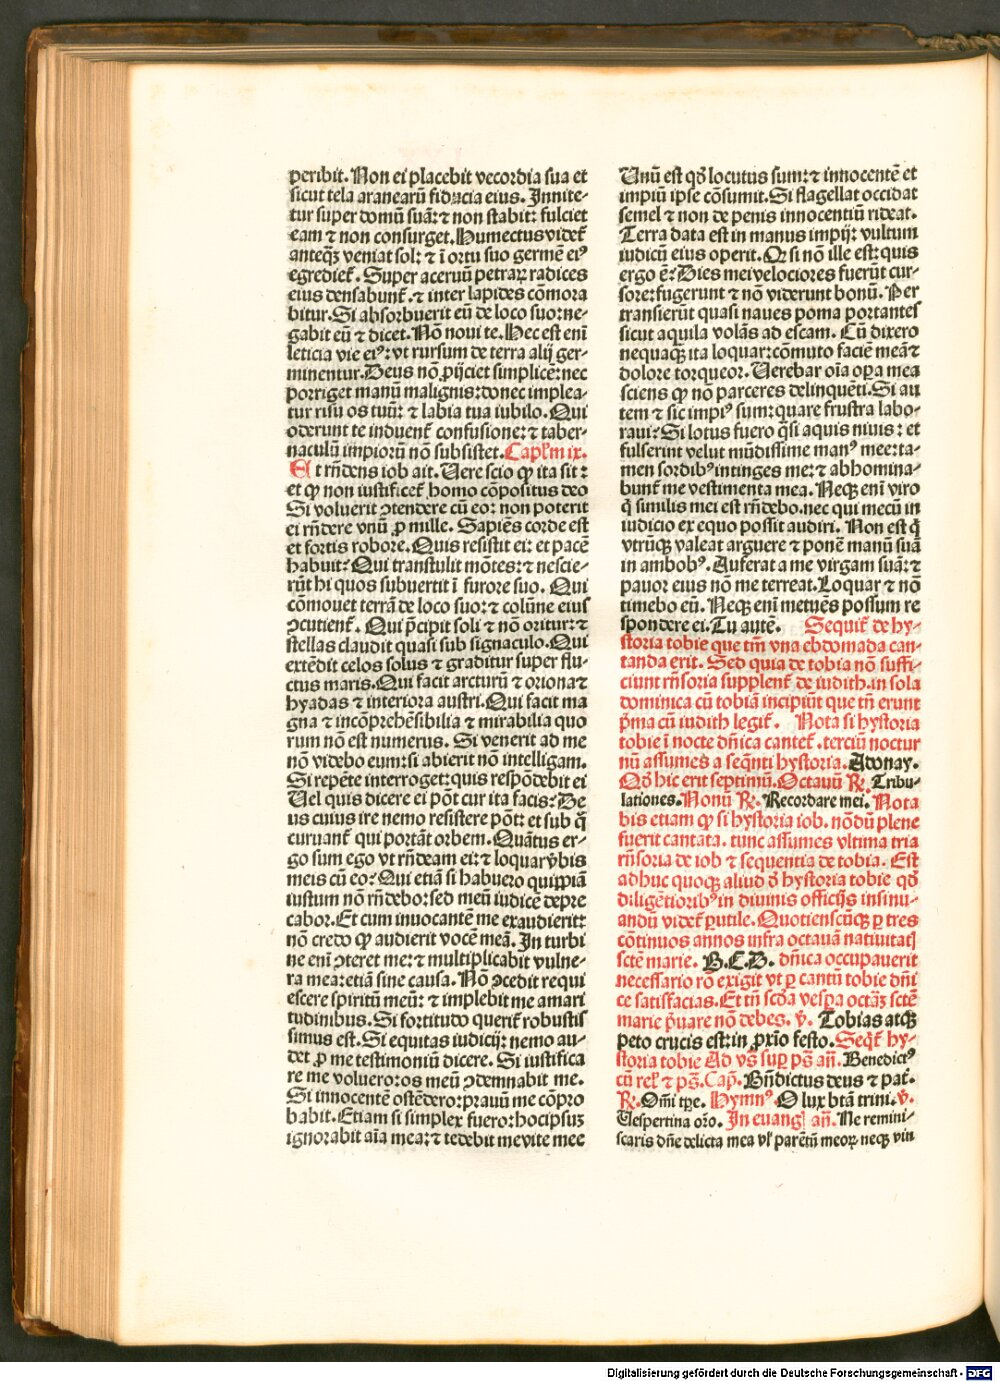 peribit. Non ei placebit vecordia sua et
sicut tela aranearū fiducia eius. Innite-
tur super domū suā: ⁊ non stabit: fulciet
eam ⁊ non consurget. Humectus videt̄
anteq̄ꝫ veniat sol: ⁊ ī ortu suo germē ei⁹
egrediet̄. Super aceruū petraꝝ radices
eius densabunt̄. ⁊ inter lapides cōmora
bitur. Si absorbuerit eū de loco suo: ne-
gabit eū ⁊ dicet. Nō noui te. Hec est enī
leticia vie ei⁹: vt rursum de terra alij ger-
minentur. Deus nō ꝓijciet simplicē: nec
porriget manū malignis: donec implea-
tur risu os tuū: ⁊ labia tua iubilo. Qui
oderunt te induent̄ confusione: ⁊ taber-
naculū impiorū nō subsistet. Capl̄m ix.
Et rn̄dens iob ait. Uere scio ꝙ ita sit:
et ꝙ non iustificet̄ homo cōpositus deo
Si voluerit ↄtendere cū eo: non poterit
ei rn̄dere vnū ꝓ mille. Sapiēs corde est
et fortis robore. Quis resistit ei: et pacē
habuit? Qui transtulit mōtes: ⁊ nescie-
rūt hi quos subuertit ī furore suo. Qui
cōmouet terrā de loco suo: ⁊ colūne eius
ↄcutient̄. Qui p̄cipit soli ⁊ nō oritur: ⁊
stellas claudit quasi sub signaculo. Qui
extēdit celos solus ⁊ graditur super flu-
ctus maris. Qui facit arcturū ⁊ oriona ⁊
hyadas ⁊ interiora austri. Qui facit ma
gna ⁊ incōprehēsibilia ⁊ mirabilia quo
rum nō est numerus. Si venerit ad me
nō videbo eum: si abierit nō intelligam.
Si repēte interroget: quis respōdebit ei
Uel quis dicere ei pōt cur ita facis? De
us cuius ire nemo resistere pōt: et sub q̄
curuant̄ qui portāt orbem. Quātus er-
go sum ego vt rn̄deam ei: ⁊ loquar v̄bis
meis cū eo? Qui etiā si habuero quippiā
iustum nō rn̄debo: sed meū iudicē depre
cabor. Et cum inuocantē me exaudierit:
nō credo ꝙ audierit vocē meā. In turbi
ne enī ↄteret me: ⁊ multiplicabit vulne-
ra mea: etiā sine causa. Nō ↄcedit requi
escere spiritū meū: ⁊ implebit me amari
tudinibus. Si fortitudo querit̄ robustis
simus est. Si equitas iudicij: nemo au-
det ꝓ me testimoniū dicere. Si iustifica
re me voluero: os meū ↄdemnabit me.
Si innocentē ostēdero: prauū me cōpro
babit. Etiam si simplex fuero: hoc ipsuꝫ
ignorabit aīa mea: ⁊ tedebit me vite mee
Unū est qd̄ locutus sum: ⁊ innocentē et
impiū ipse cōsumit. Si flagellat occidat
semel ⁊ non de penis innocentiū rideat.
Terra data est in manus impij: vultum
iudicū eius operit. Qꝛ si nō ille est: quis
ergo ē? Dies mei velociores fuerūt cur-
sore: fugerunt ⁊ nō viderunt bonū. Per
transierūt quasi naues poma portantes
sicut aquila volās ad escam. Cū dixero
nequaqꝫ ita loquar: cōmuto faciē meā ⁊
dolore torqueor. Uerebar oīa oꝑa mea
sciens ꝙ nō parceres delinquēti. Si au
tem ⁊ sic impi⁹ sum: quare frustra labo-
raui? Si lotus fuero q̄si aquis niuis: et
fulserint velut mūdissime man⁹ mee: ta-
men sordib⁹ intinges me: ⁊ abhomina-
bunt̄ me vestimenta mea. Neqꝫ enī viro
q̄ similis mei est rn̄debo. nec qui mecū in
iudicio ex equo possit audiri. Non est q̄
vtrūqꝫ valeat arguere ⁊ ponē manū suā
in ambob⁹. Auferat a me virgam suā: ⁊
pauor eius nō me terreat. Loquar ⁊ nō
timebo eū. Neqꝫ enī metuēs possum re
spondere ei. Tu autē. Sequit̄ de hy-
storia tobie que tm̄ vna ebdomada can-
tanda erit. Sed quia de tobia nō suffi-
ciunt rn̄soria supplent̄ de iudith. in sola
dominica cū tobiā incipiūt que tn̄ erunt
p̄ma cū iudith legit̄. Nota si hystoria
tobie ī nocte dn̄ica cantet̄. terciū noctur
nū assumes a seqn̄ti hystoria. Adonay.
Qd̄ hic erit septimū. Octauū ℟. Tribu-
lationes. Nonū ℟. Recordare mei. Nota
bis etiam ꝙ si hystoria iob. nōdū plene
fuerit cantata. tunc assumes vltima tria
rn̄soria de iob ⁊ sequentia de tobia. Est
adhuc quoqꝫ aliud d̄ hystoria tobie qd̄
diligētiorib⁹ in diuinis officijs insinu-
andū videt̄ ꝑutile. Quotienscūqꝫ ꝑ tres
cōtinuos annos infra octauā natiuitatꝭ
sctē marie. B. C. D. dn̄ica occupauerit
necessario rō exigit vt ꝑ cantū tobie dn̄i
ce satisfacias. Et tn̄ scd̄a vesꝑa octāꝫ sctē
marie p̄uare nō debes. v̄. Tobias atqꝫ
peto crucis est: in ꝓxīo festo. Seqt̄ hy-
storia tobie Ad vs̄ suꝑ ps̄ an̄. Benedict⁹
cū rel̄ ⁊ ps̄. Cap̄. Bn̄dictus deus ⁊ pat̄.
℟. Om̄i tꝑe. Hymn⁹. O lux btā trini. v̄.
Uespertina or̄o. In euangl̄ an̄. Ne remini-
scaris dn̄e delicta mea vl̄ parētū meoꝝ neqꝫ vin
Digitalisierung gefördert durch die Deutsche Forschungsgemeinschaft - DFG